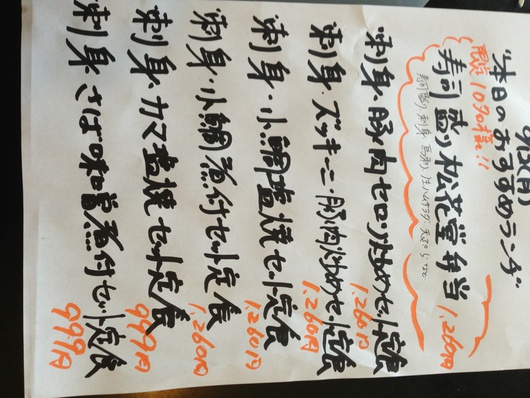 本日のおすすめランチ
限定10名様!!
寿司盛り松花堂弁当 1,260円
刺身・豚肉セロリ炒めセット定食 1,260円
刺身・ズッキーニ・豚肉炒めセット定食 1,260円
刺身・小鯛塩焼セット定食 1,260円
刺身・小鯛煮付セット定食 1,260円
刺身・カマ塩焼セット定食 999円
刺身・さば味噌煮付セット定食 999円